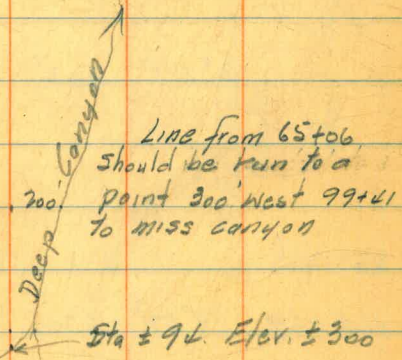 Deep Canyon
Line from 65+06
should be run to a
200' point 300' West 99+41
to miss canyon
Sta ± 94. Elev. ± 300